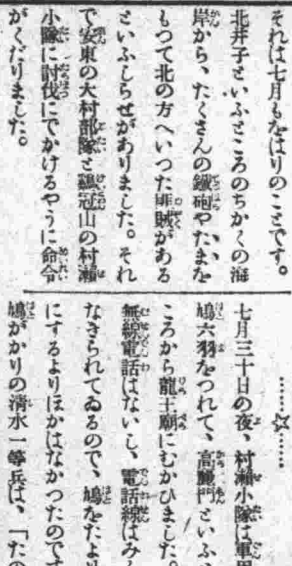 それは七月もをはりのことです。
北井子といふところのちかくの海
岸から、たくさんの鐵砲やたまを
もつて北の方へいつた匪賊がある
といふしらせがありました。それ
で安東の大村部隊と鷄冠山の村瀬
小隊に討伐にでかけるやうに命令
がくだりました。
……☆……
七月三十日の夜、村瀬小隊は軍用
鳩六羽をつれて、高麗門といふ
ころから龍王廟にむかひました。
無線電話はないし、電話線はみ
なきられてゐるので、鳩をたより
にするよりほかはなかつたのです
鳩がかりの清水一等兵は、「たの